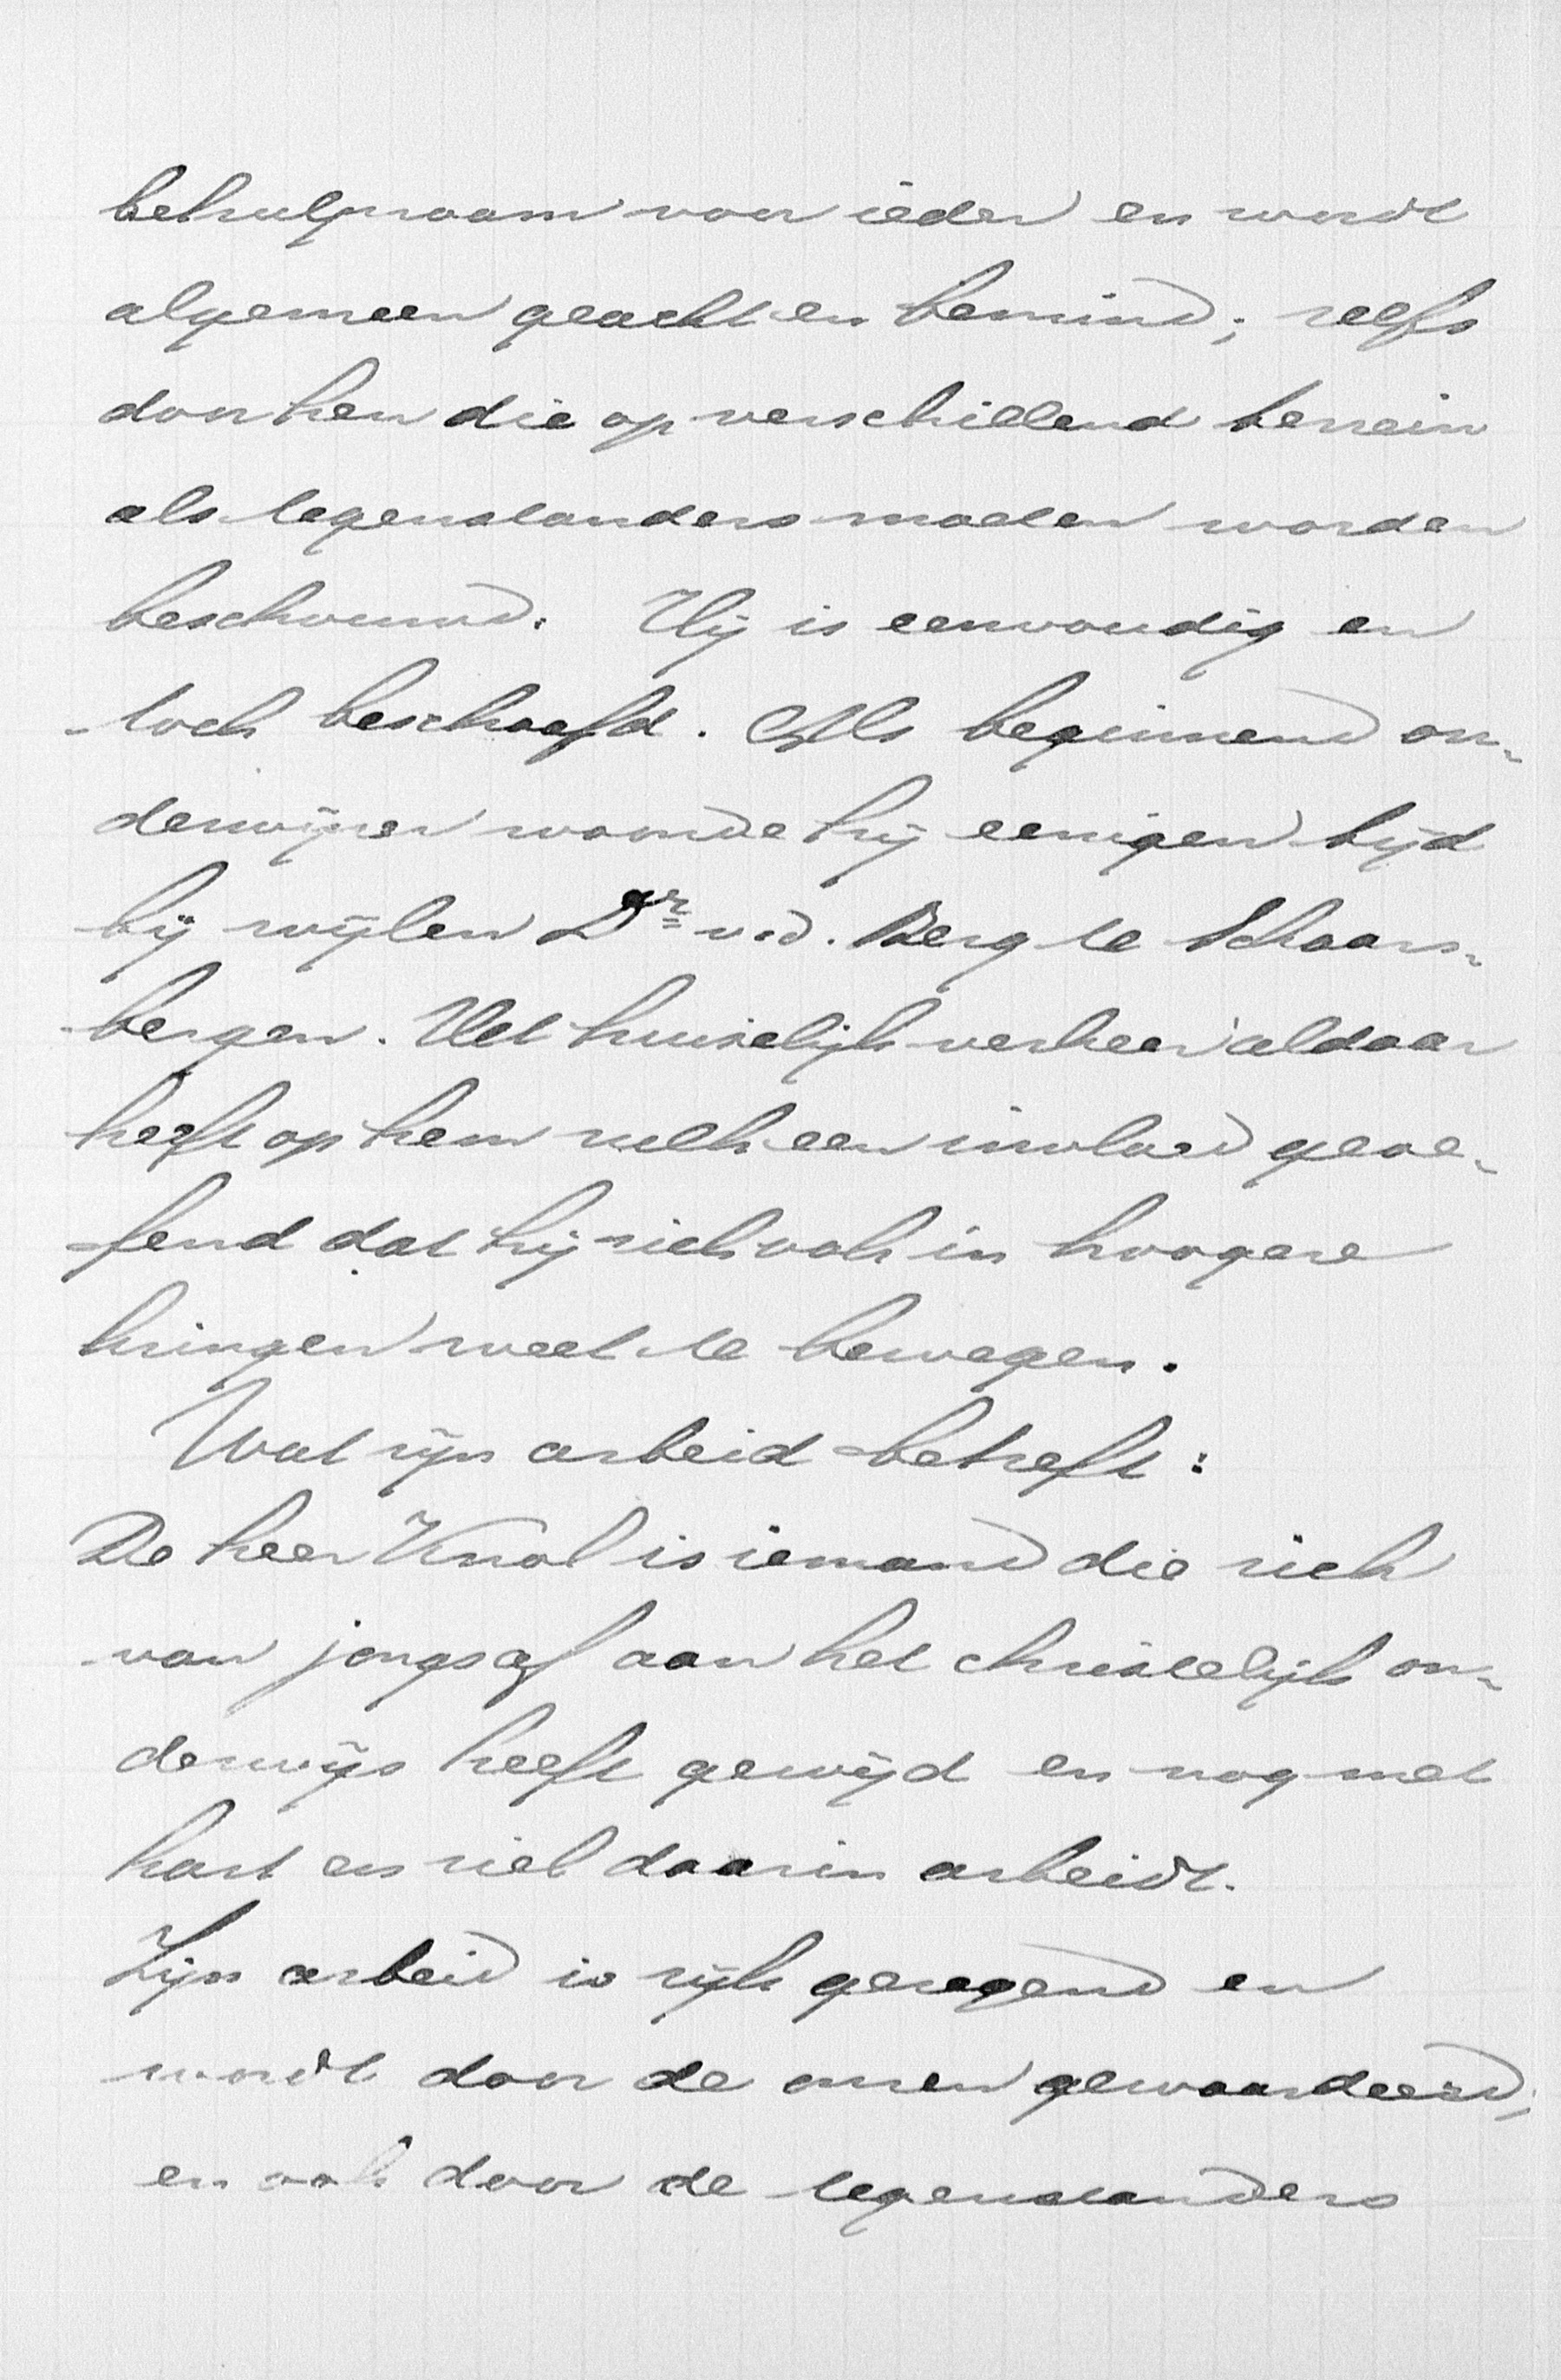 behulpzaam voor ieder en wordt
algemeen geacht en bemind; zelfs
door hen die op verschillend terrein
als tegenstanders moeten worden
beschouwd. Hij is eenvoudig en
toch beschaafd. Als beginnend on-
derwijzer woonde hij eenigen tijd
bij wijlen Dr v.d. Berg te Schaars-
bergen. Het huiselijk verkeer aldaar
heeft op hem zulk een invloed geoe-
fend dat hij zich ook in hoogere
kringen weet te bewegen.
Wat zijn arbeid betreft:
De heer Knol is iemand die zich
van jongsaf aan het christelijk on-
derwijs heeft gewijd en nog met
hart en ziel daarin arbeidt.
Zijn arbeid is rijk gezegend en
wordt door de onzen gewaardeerd,
en ook door de tegenstanders